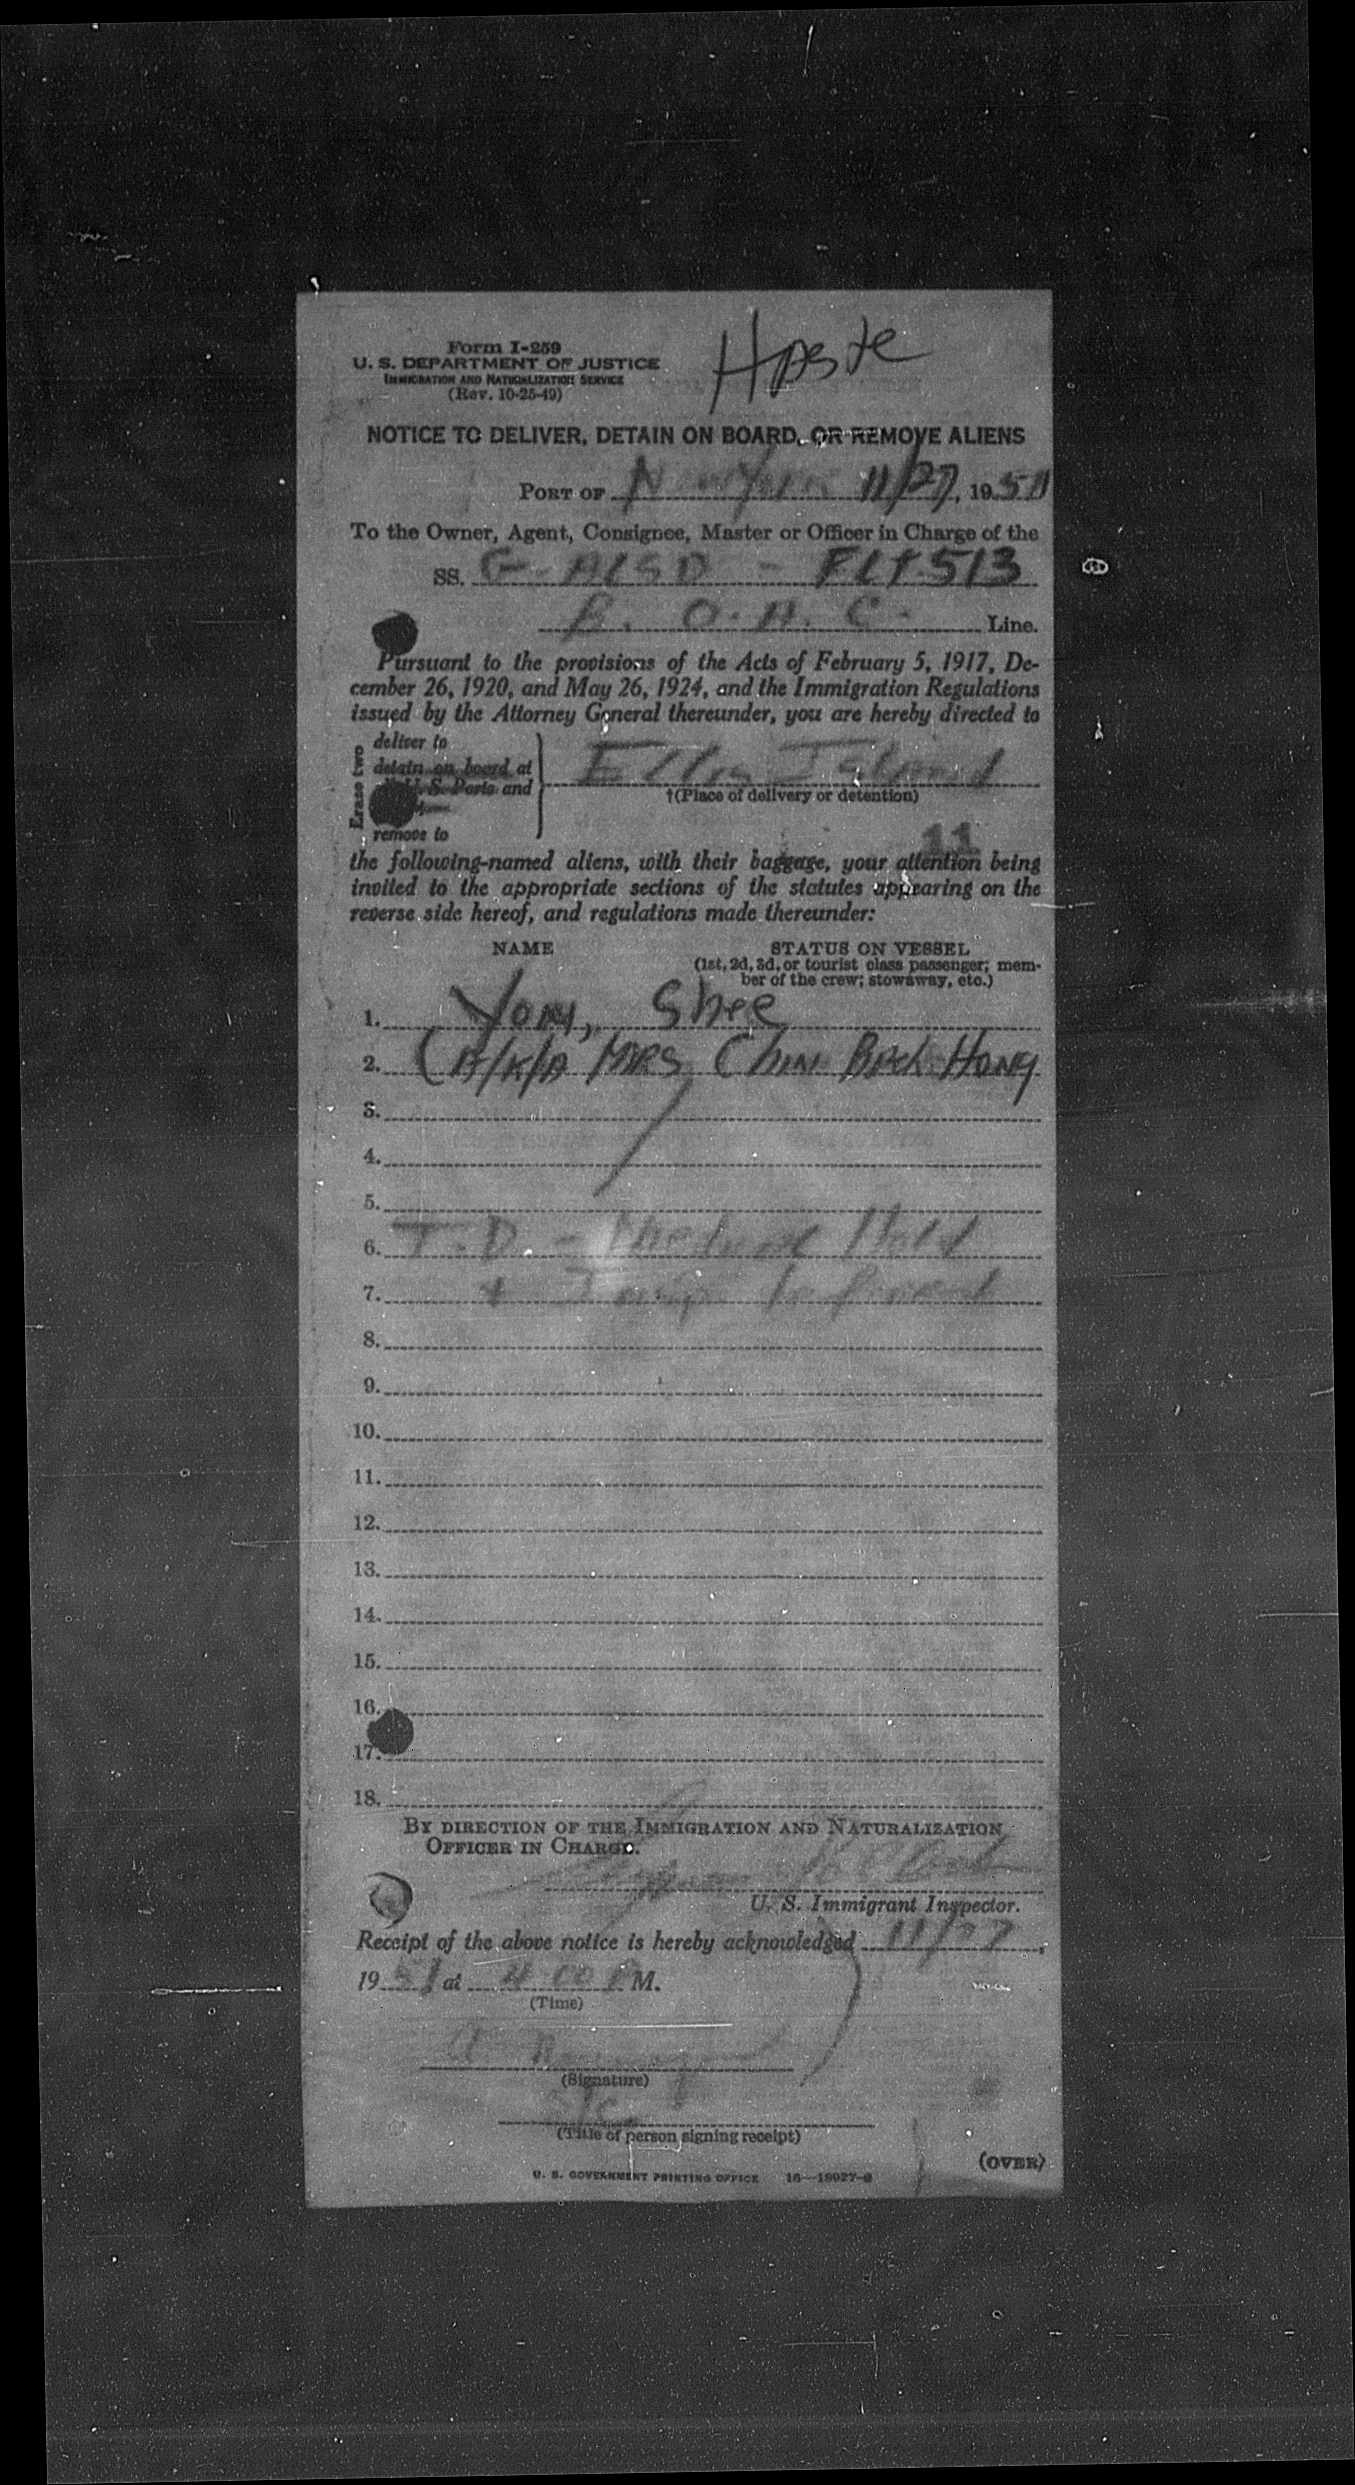 Form I-259
U. S. DEPARTMENT OF JUSTICE
IMMIGRATION AND NATURALIZATION SERVICE
(Rev. 10-25-49)
NOTICE TO DELIVER, DETAIN ON BOARD, OR REMOVE ALIENS
PORT OF New York 11/27, 1951
To the Owner, Agent, Consignee, Master or Officer in Charge of the
SS. G-ALSD - FLT 513
B. O. A. C. Line.
Pursuant to the provisions of the Acts of February 5, 1917, De-
cember 26, 1920, and May 26, 1924, and the Immigration Regulations
issued by the Attorney General thereunder, you are hereby directed to
Erase two
deliver to
detain on board at
U. S. Ports and
remove to
Ellis Island
†(Place of delivery or detention)
11
the following-named aliens, with their baggage, your attention being
invited to the appropriate sections of the statutes appearing on the
reverse side hereof, and regulations made thereunder:
NAME STATUS ON VESSEL
(1st, 2d, 3d, or tourist class passenger; mem-
ber of the crew; stowaway, etc.)
1. Shee
2. (A/K/A MRS Chin Hong
3.
4.
5.
6. T. D. - Medical Hold
7. +
8.
9.
10.
11.
12.
13.
14.
15.
16.
17.
18.
BY DIRECTION OF THE IMMIGRATION AND NATURALIZATION
OFFICER IN CHARGE.
U. S. Immigrant Inspector.
Receipt of the above notice is hereby acknowledged 11/27,
1951 at 4:00 P M.
(Time)
(Signature)
(Title of person signing receipt)
(OVER)
U. S. GOVERNMENT PRINTING OFFICE